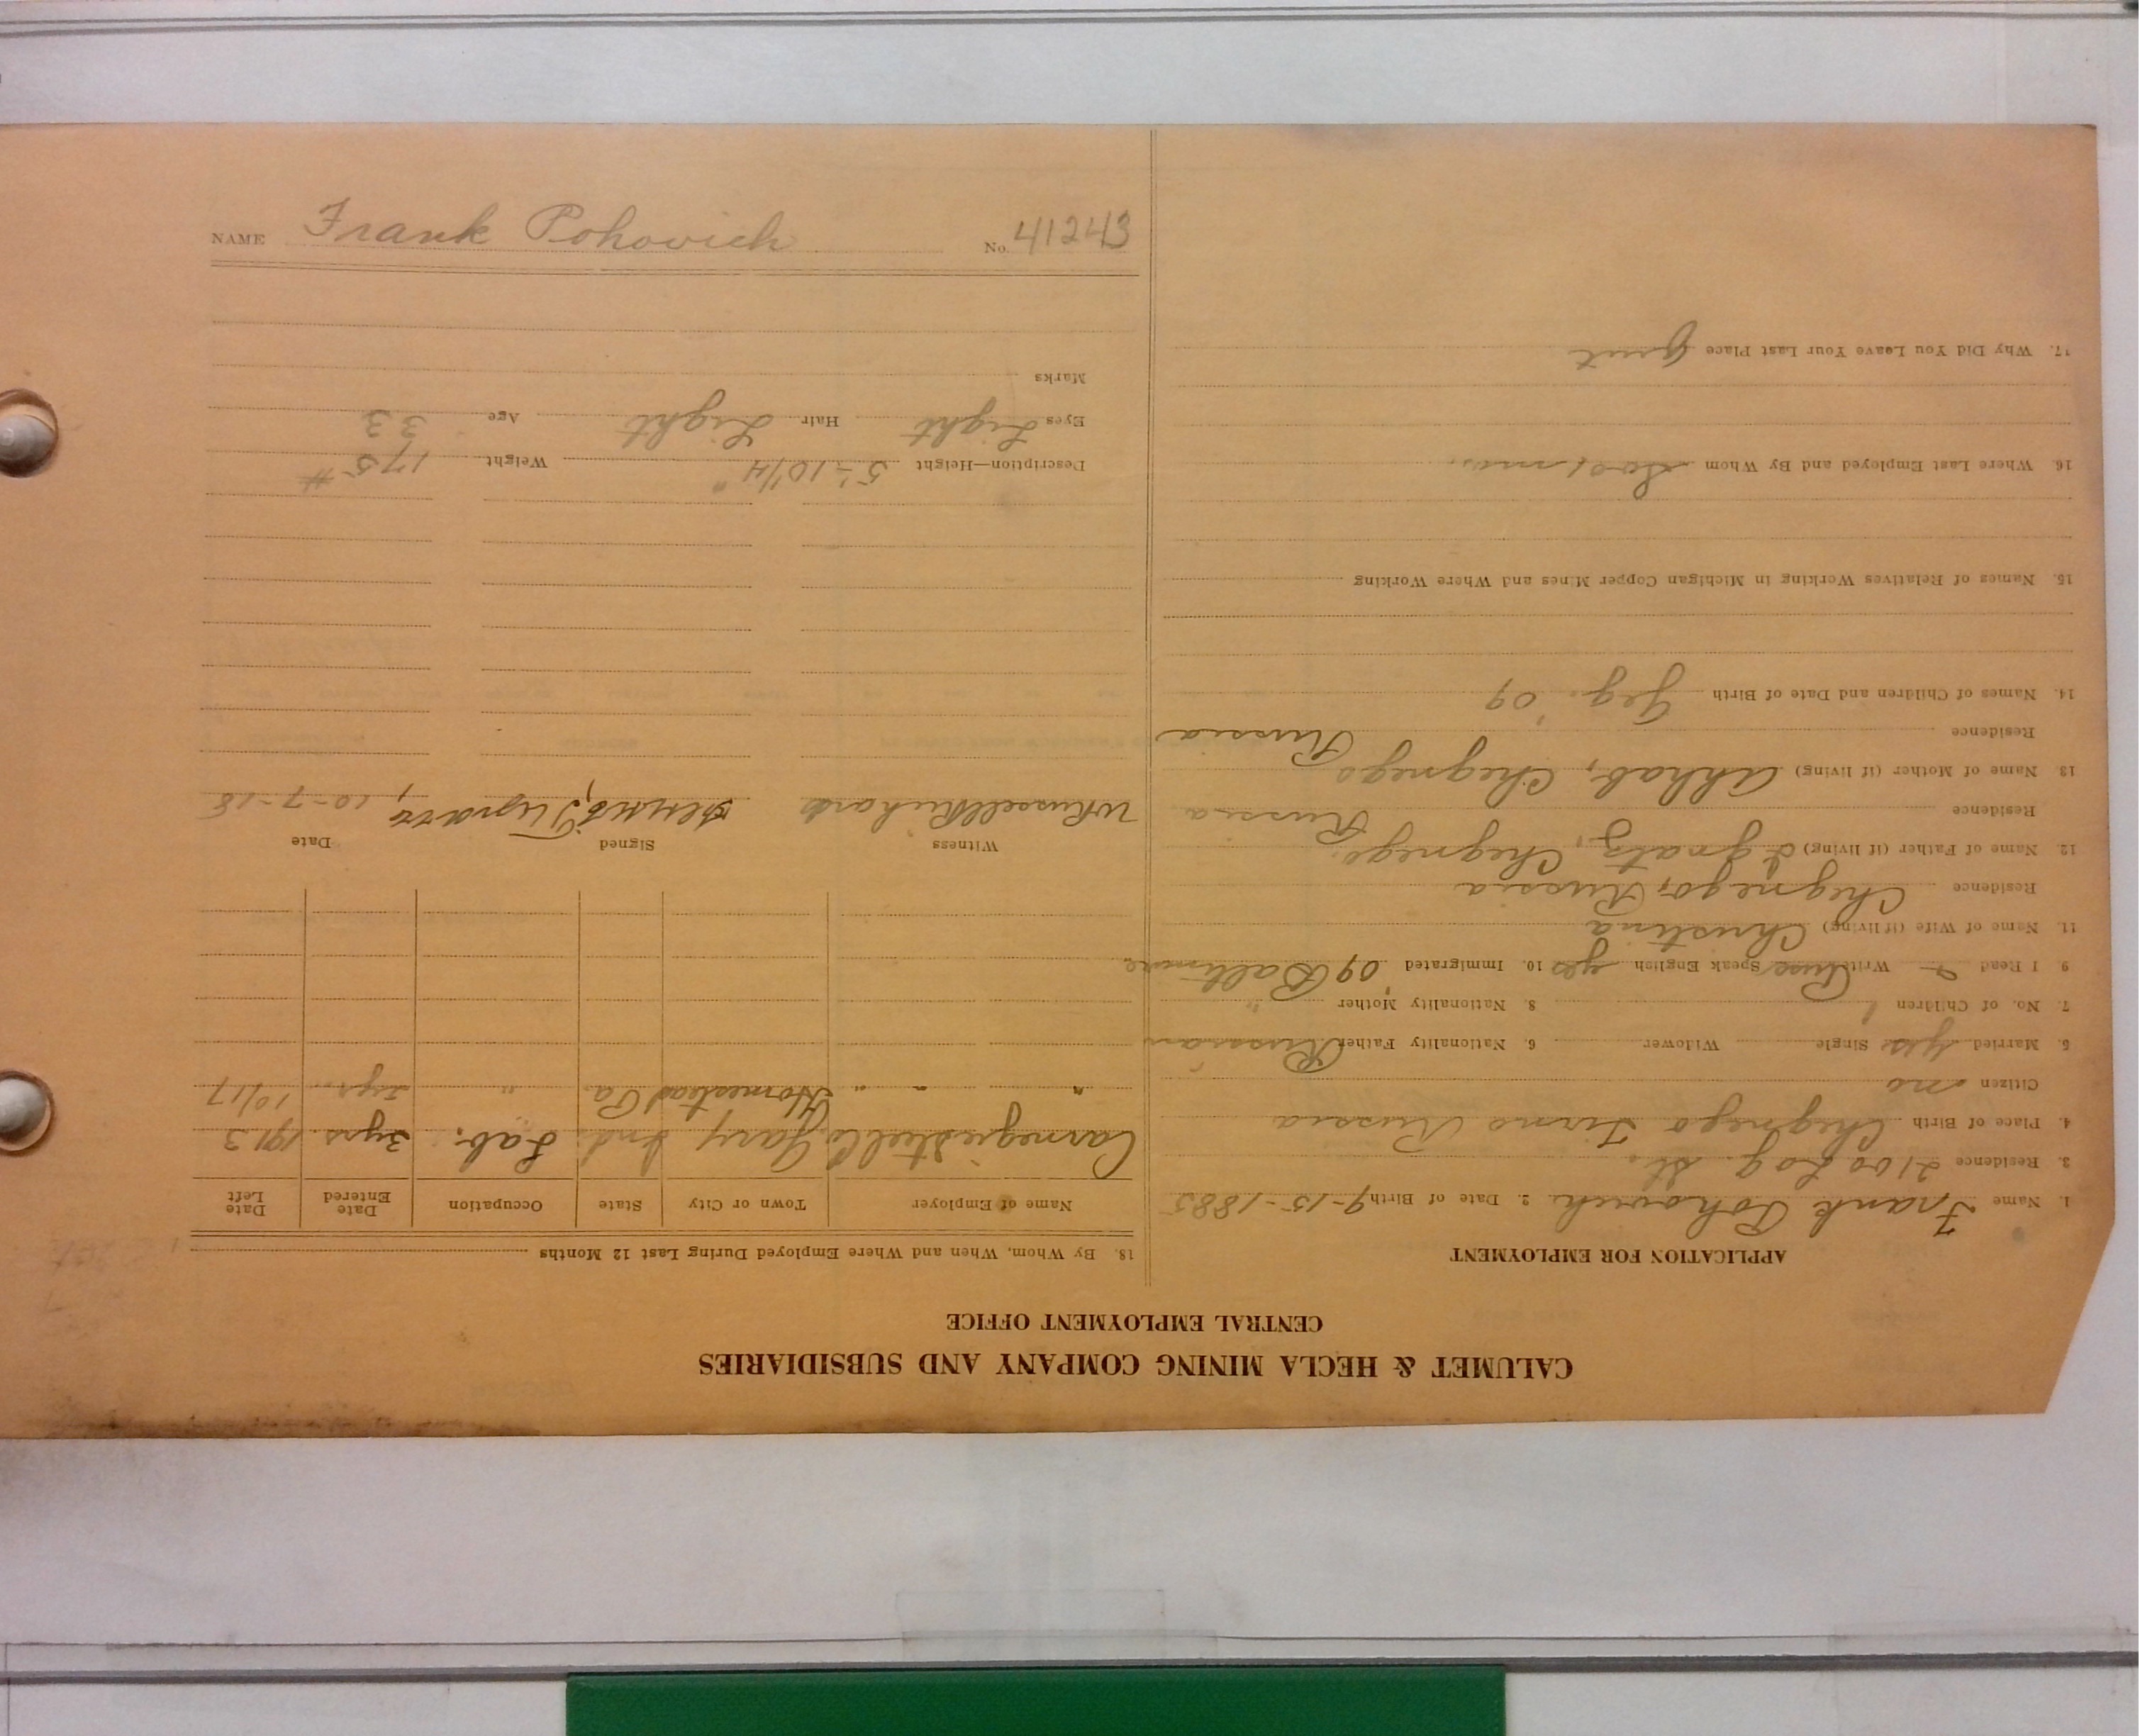 NAME Frank Pohovich No. 41243
CALUMET & HECLA MINING COMPANY AND SUBSIDIARIES
CENTRAL EMPLOYMENT OFFICE
APPLICATION FOR EMPLOYMENT
1. Name Frank Pohovich 2. Date of Birth 9-15-1885
3. Residence 2100 Log. St.
4. Place of Birth Chegnego Russia
Citizen no
5. Married yes Single Widower 6. Nationality Father Russian
7. No. of Children 1 8. Nationality Mother "
9 I Read & Write Speak English yes 10. Immigrated '09 Baltimore
11. Name of Wife (if living) Christina
Residence Chegnego, Russia
12. Name of Father (if living) Ignatz, Chegnego,
Residence Russia
13. Name of Mother (if living) Chegnego
Residence Russia
14. Names of Children and Date of Birth '09
15. Names of Relatives Working in Michigan Copper Mines and Where Working
16. Where Last Employed and By Whom
17. Why Did You Leave Your Last Place quit
18. By Whom, When and Where Employed During Last 12 Months
Name of Employer Town or City State Occupation Date Entered Date Left
Carnegie Steel Co Gary Ind. Lab. 3yrs 1913
" " " Homestead Pa. " 2yrs. 10/17
Witness Signed Date
W Russell Richards 10-7-18
Description—Height 5'-10 1/4" Weight 175#
Eyes Light Hair Light Age 33
Marks